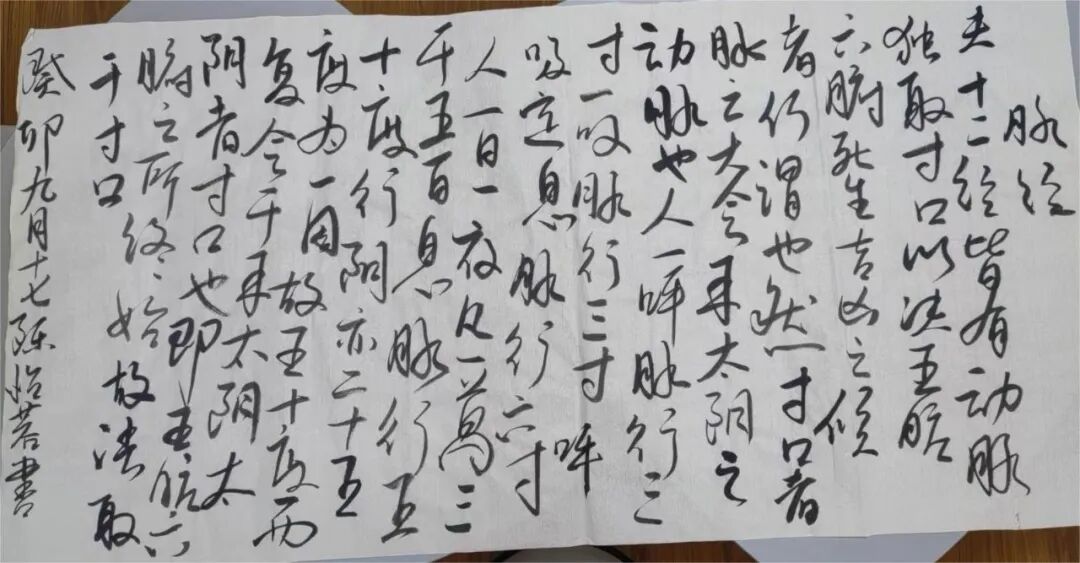 脉经
夫十二经皆有动脉
独取寸口以决五脏
六腑死生吉凶之候
者何谓也然寸口者
脉之大会手太阴之
动脉也人一呼脉行三
寸一吸脉行三寸呼
吸定息脉行六寸
人一日一夜凡一萬三
千五百息脉行五
十度行阴亦二十五
度为一周故五十度而
复会于手太阴太
阴者寸口也即五脏六
腑之所终始故法取
于寸口
癸卯九月十七陈怡書